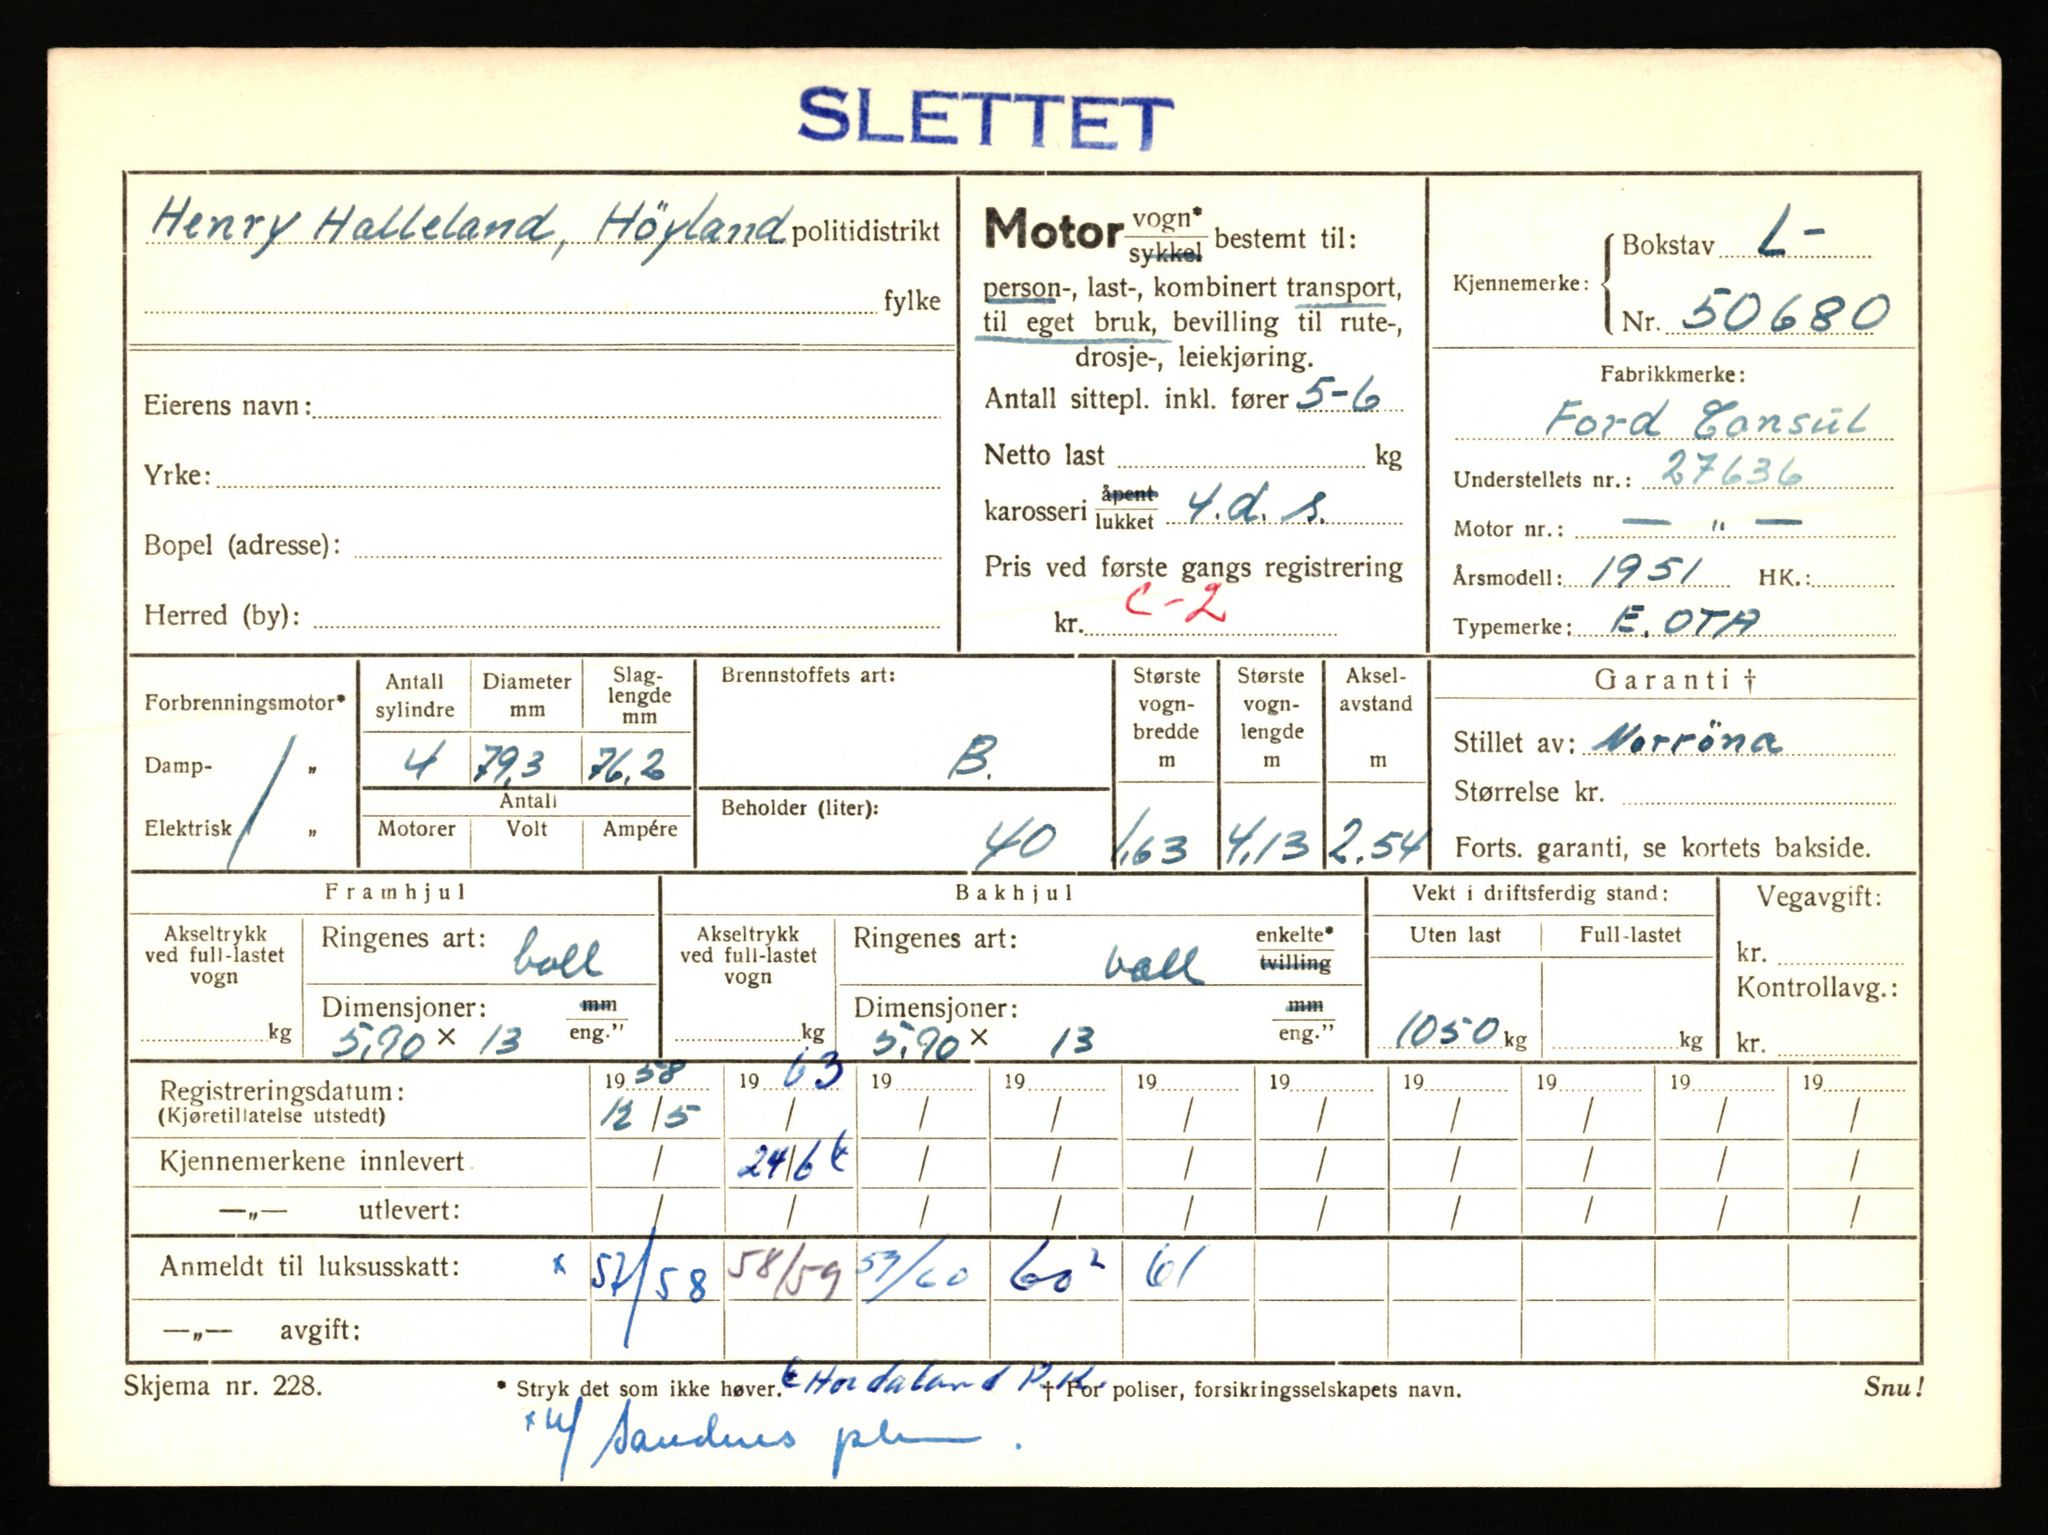 SLETTET
Henry Halleland, Höyland politidistrikt
fylke
Eierens navn:
Yrke:
Bopel (adresse):
Herred (by):
Motor vogn* / sykkel bestemt til:
person-, last-, kombinert transport,
til eget bruk, bevilling til rute-,
drosje-, leiekjøring.
Antall sittepl. inkl. fører 5-6
Netto last kg
karosseri åpent / lukket 4.d.s.
Pris ved første gangs registrering
kr. C-2
Kjennemerke: Bokstav L-
Nr. 50680
Fabrikkmerke:
Ford Consul
Understellets nr.: 27636
Motor nr.: — „ —
Årsmodell: 1951 HK.:
Typemerke: E.OTA
Forbrenningsmotor*
Damp- „
Elektrisk „
Antall sylindre 4
Diameter mm 79,3
Slaglengde mm 76,2
Antall
Motorer Volt Ampére
Brennstoffets art: B.
Beholder (liter): 40
Største vognbredde m 1,63
Største vognlengde m 4,13
Akselavstand m 2.54
Garanti †
Stillet av: Norröna
Størrelse kr.
Forts. garanti, se kortets bakside.
Framhjul
Akseltrykk ved full-lastet vogn kg
Ringenes art: ball
Dimensjoner: mm / eng."
5,90 × 13
Bakhjul
Akseltrykk ved full-lastet vogn kg
Ringenes art: ball enkelte* / tvilling
Dimensjoner: mm / eng."
5,90 × 13
Vekt i driftsferdig stand:
Uten last Full-lastet
1050 kg kg
Vegavgift:
kr.
Kontrollavg.:
kr.
Registreringsdatum: 19 58 19 63 19 19 19 19 19 19 19 19
(Kjøretillatelse utstedt) 12/5 / / / / / / / / /
Kjennemerkene innlevert / 24/6 / / / / / / / /
—„— utlevert: / / / / / / / / / /
Anmeldt til luksusskatt: x 57/58 58/59 59/60 60² 61
—„— avgift:
Skjema nr. 228. * Stryk det som ikke høver. Hordaland P.K. † For poliser, forsikringsselskapets navn. Snu!
Sandnes